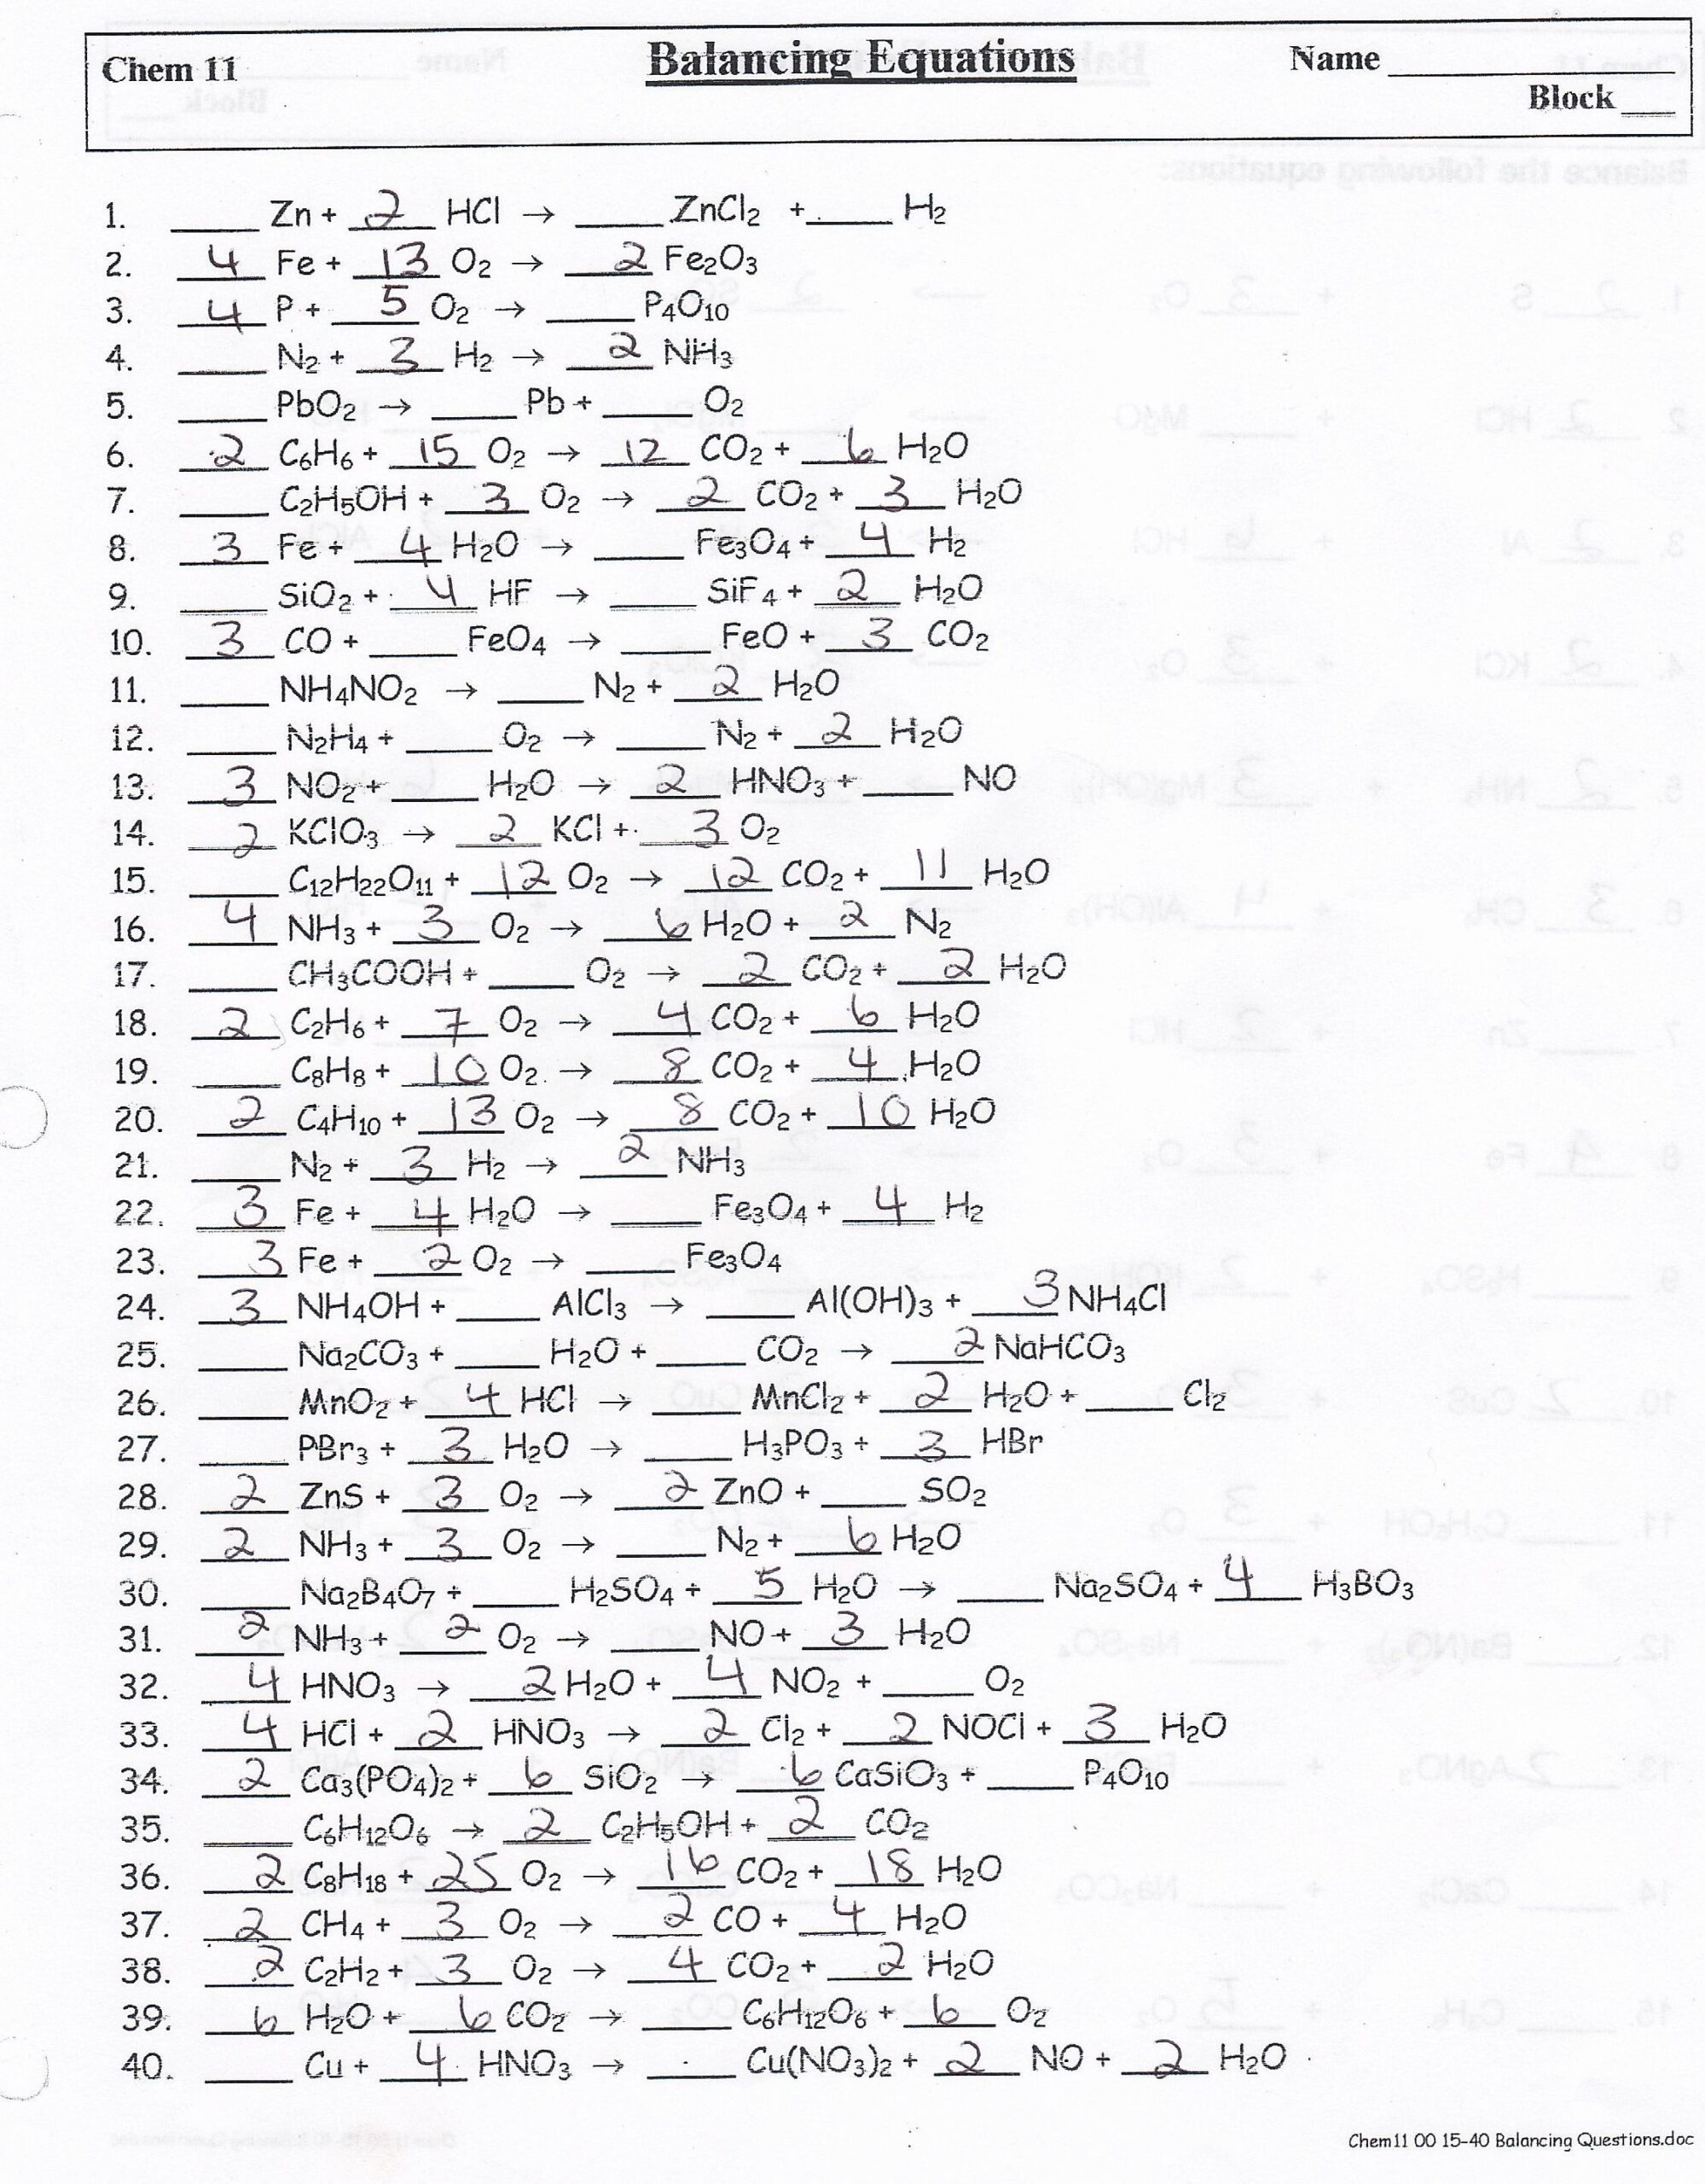 Chem 11 Balancing Equations Name ____
Block ____
1. ____ Zn + 2 HCl → ____ ZnCl2 + ____ H2
2. 4 Fe + 13 O2 → 2 Fe2O3
3. 4 P + 5 O2 → ____ P4O10
4. ____ N2 + 3 H2 → 2 NH3
5. ____ PbO2 → ____ Pb + ____ O2
6. 2 C6H6 + 15 O2 → 12 CO2 + 6 H2O
7. ____ C2H5OH + 3 O2 → 2 CO2 + 3 H2O
8. 3 Fe + 4 H2O → ____ Fe3O4 + 4 H2
9. ____ SiO2 + 4 HF → ____ SiF4 + 2 H2O
10. 3 CO + ____ FeO4 → ____ FeO + 3 CO2
11. ____ NH4NO2 → ____ N2 + 2 H2O
12. ____ N2H4 + ____ O2 → ____ N2 + 2 H2O
13. 3 NO2 + ____ H2O → 2 HNO3 + ____ NO
14. 2 KClO3 → 2 KCl + 3 O2
15. ____ C12H22O11 + 12 O2 → 12 CO2 + 11 H2O
16. 4 NH3 + 3 O2 → 6 H2O + 2 N2
17. ____ CH3COOH + ____ O2 → 2 CO2 + 2 H2O
18. 2 C2H6 + 7 O2 → 4 CO2 + 6 H2O
19. ____ C8H8 + 10 O2 → 8 CO2 + 4 H2O
20. 2 C4H10 + 13 O2 → 8 CO2 + 10 H2O
21. ____ N2 + 3 H2 → 2 NH3
22. 3 Fe + 4 H2O → ____ Fe3O4 + 4 H2
23. 3 Fe + 2 O2 → ____ Fe3O4
24. 3 NH4OH + ____ AlCl3 → ____ Al(OH)3 + 3 NH4Cl
25. ____ Na2CO3 + ____ H2O + ____ CO2 → 2 NaHCO3
26. ____ MnO2 + 4 HCl → ____ MnCl2 + 2 H2O + ____ Cl2
27. ____ PBr3 + 3 H2O → ____ H3PO3 + 3 HBr
28. 2 ZnS + 3 O2 → 2 ZnO + ____ SO2
29. 2 NH3 + 3 O2 → ____ N2 + 6 H2O
30. ____ Na2B4O7 + ____ H2SO4 + 5 H2O → ____ Na2SO4 + 4 H3BO3
31. 2 NH3 + 2 O2 → ____ NO + 3 H2O
32. 4 HNO3 → 2 H2O + 4 NO2 + ____ O2
33. 4 HCl + 2 HNO3 → 2 Cl2 + 2 NOCl + 3 H2O
34. 2 Ca3(PO4)2 + 6 SiO2 → 6 CaSiO3 + ____ P4O10
35. ____ C6H12O6 → 2 C2H5OH + 2 CO2
36. 2 C8H18 + 25 O2 → 16 CO2 + 18 H2O
37. 2 CH4 + 3 O2 → 2 CO + 4 H2O
38. 2 C2H2 + 3 O2 → 4 CO2 + 2 H2O
39. 6 H2O + 6 CO2 → ____ C6H12O6 + 6 O2
40. ____ Cu + 4 HNO3 → ____ Cu(NO3)2 + 2 NO + 2 H2O
Chem11 00 15-40 Balancing Questions.doc